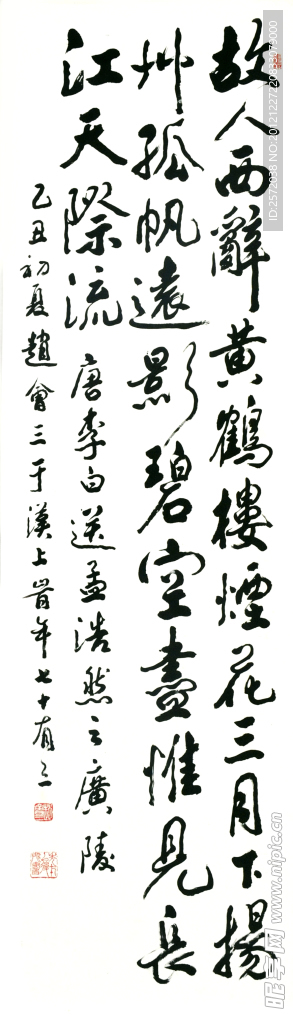 故人西辭黄鶴樓煙花三月下揚
州孤帆遠影碧空盡惟見長
江天際流
唐李白送孟浩然之廣陵
乙丑初夏趙會三于漢上旹年七十有三
ID:2572038 NO:20121227220833079000
昵享网 www.nipic.cn